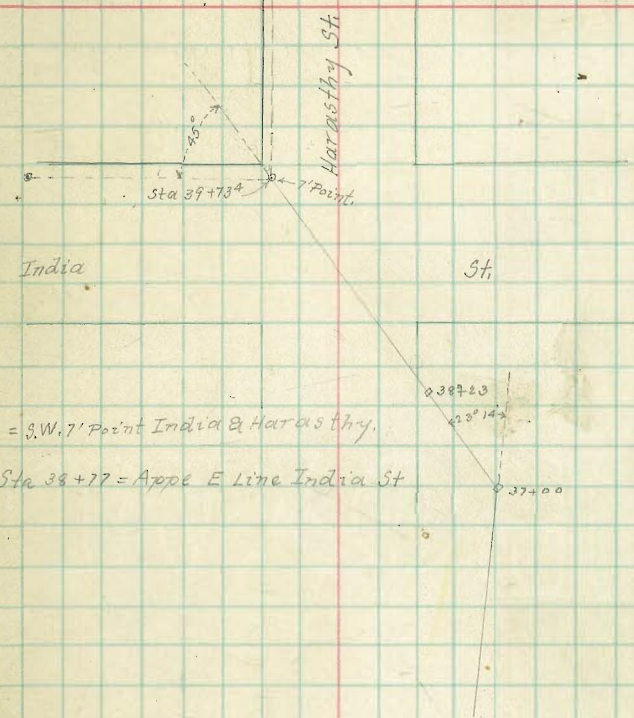 Harasthy St.
45°
Sta 39+73⁴
7' Point.
India St.
38+23
23° 14
= S.W. 7' Point India & Harasthy.
Sta 38+77 = Appe E Line India St
37+00